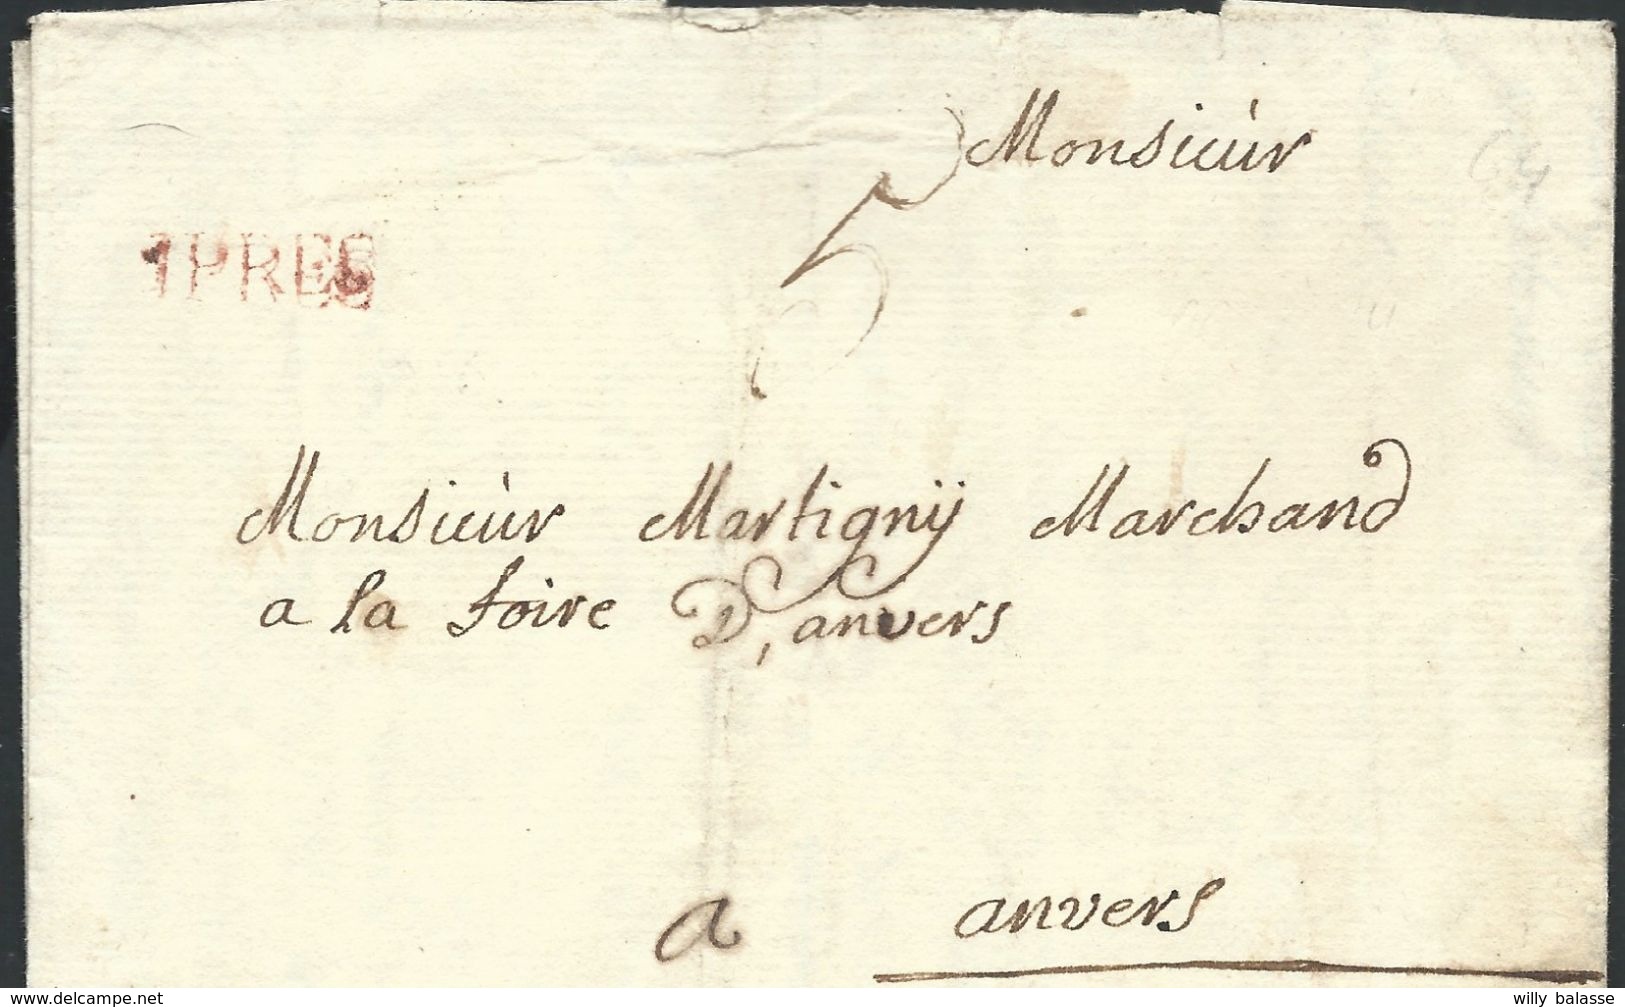 Monsieùr
YPRES
5
Monsieùr Martignÿ Marchand
a la foire D, anvers
a anvers
delcampe.net
willy balasse